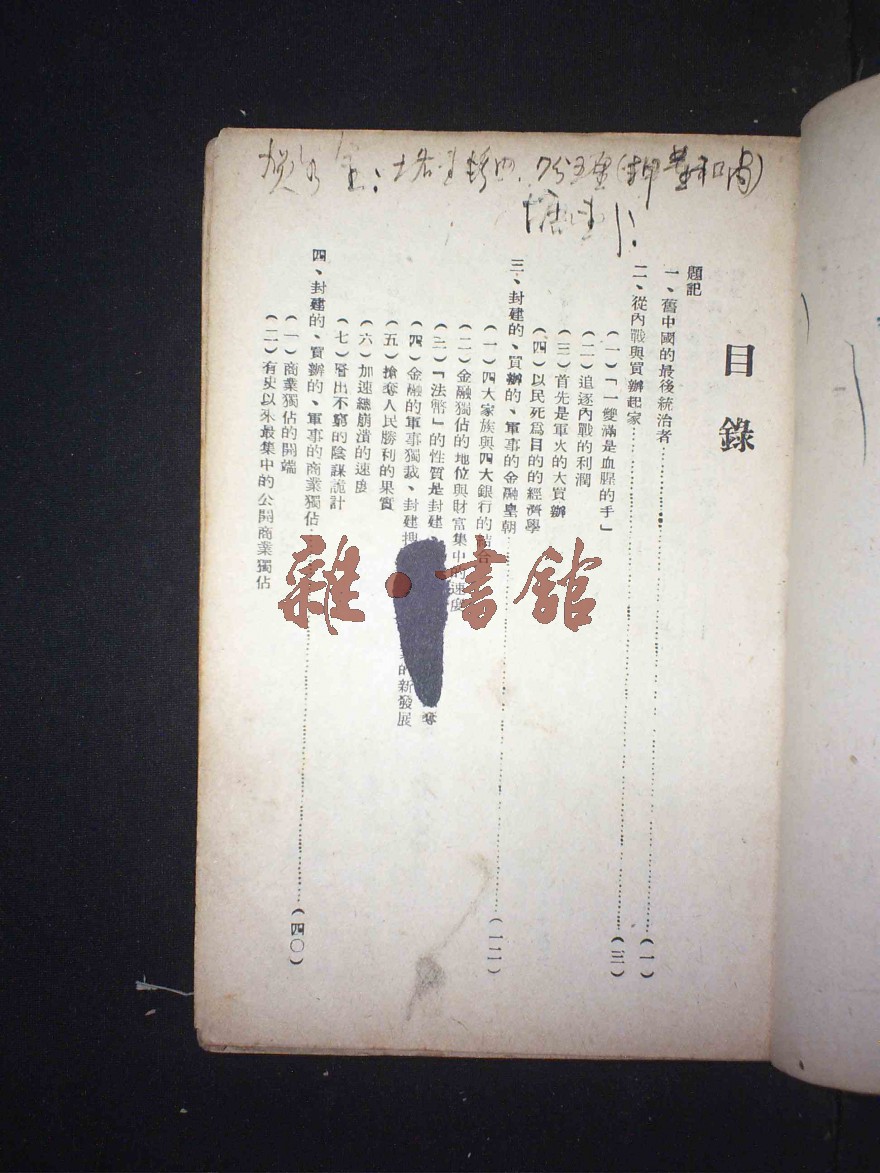 目錄
題記
一、舊中國的最後統治者……（一）
二、從內戰與買辦起家……（三）
（一）「一雙滿是血腥的手」
（二）追逐內戰的利潤
（三）首先是軍火的大買辦
（四）以民死為目的的經濟學
三、封建的、買辦的、軍事的金融皇朝……（一二）
（一）四大家族與四大銀行的結合
（二）金融獨佔的地位與財富集中的速度
（三）「法幣」的性質是封建
（四）金融的軍事獨裁、封建搜
的新發展
（五）搶奪人民勝利的果實
（六）加速總崩潰的速度
（七）層出不窮的陰謀詭計
四、封建的、買辦的、軍事的商業獨佔……（四〇）
（一）商業獨佔的開端
（二）有史以來最集中的公開商業獨佔
雜·書館